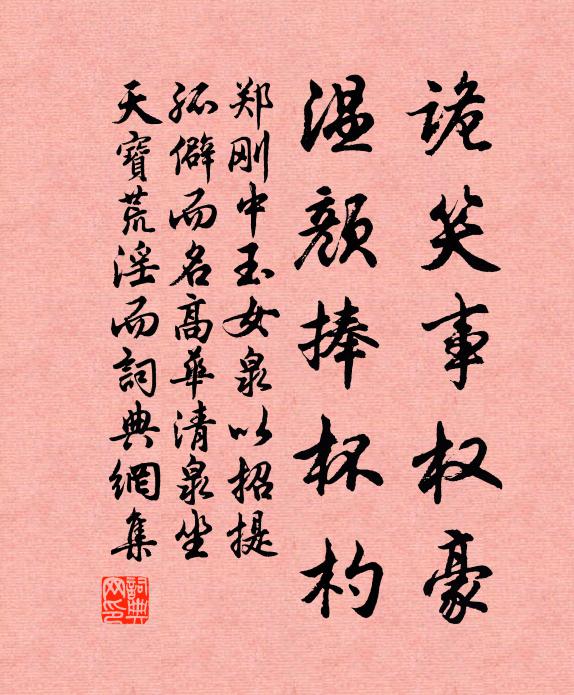 詭笑事权豪
温颜捧杯杓
郑刚中玉女泉以招提
孤僻而名高华清泉坐
天寶荒淫而詞典網集
詞典網印